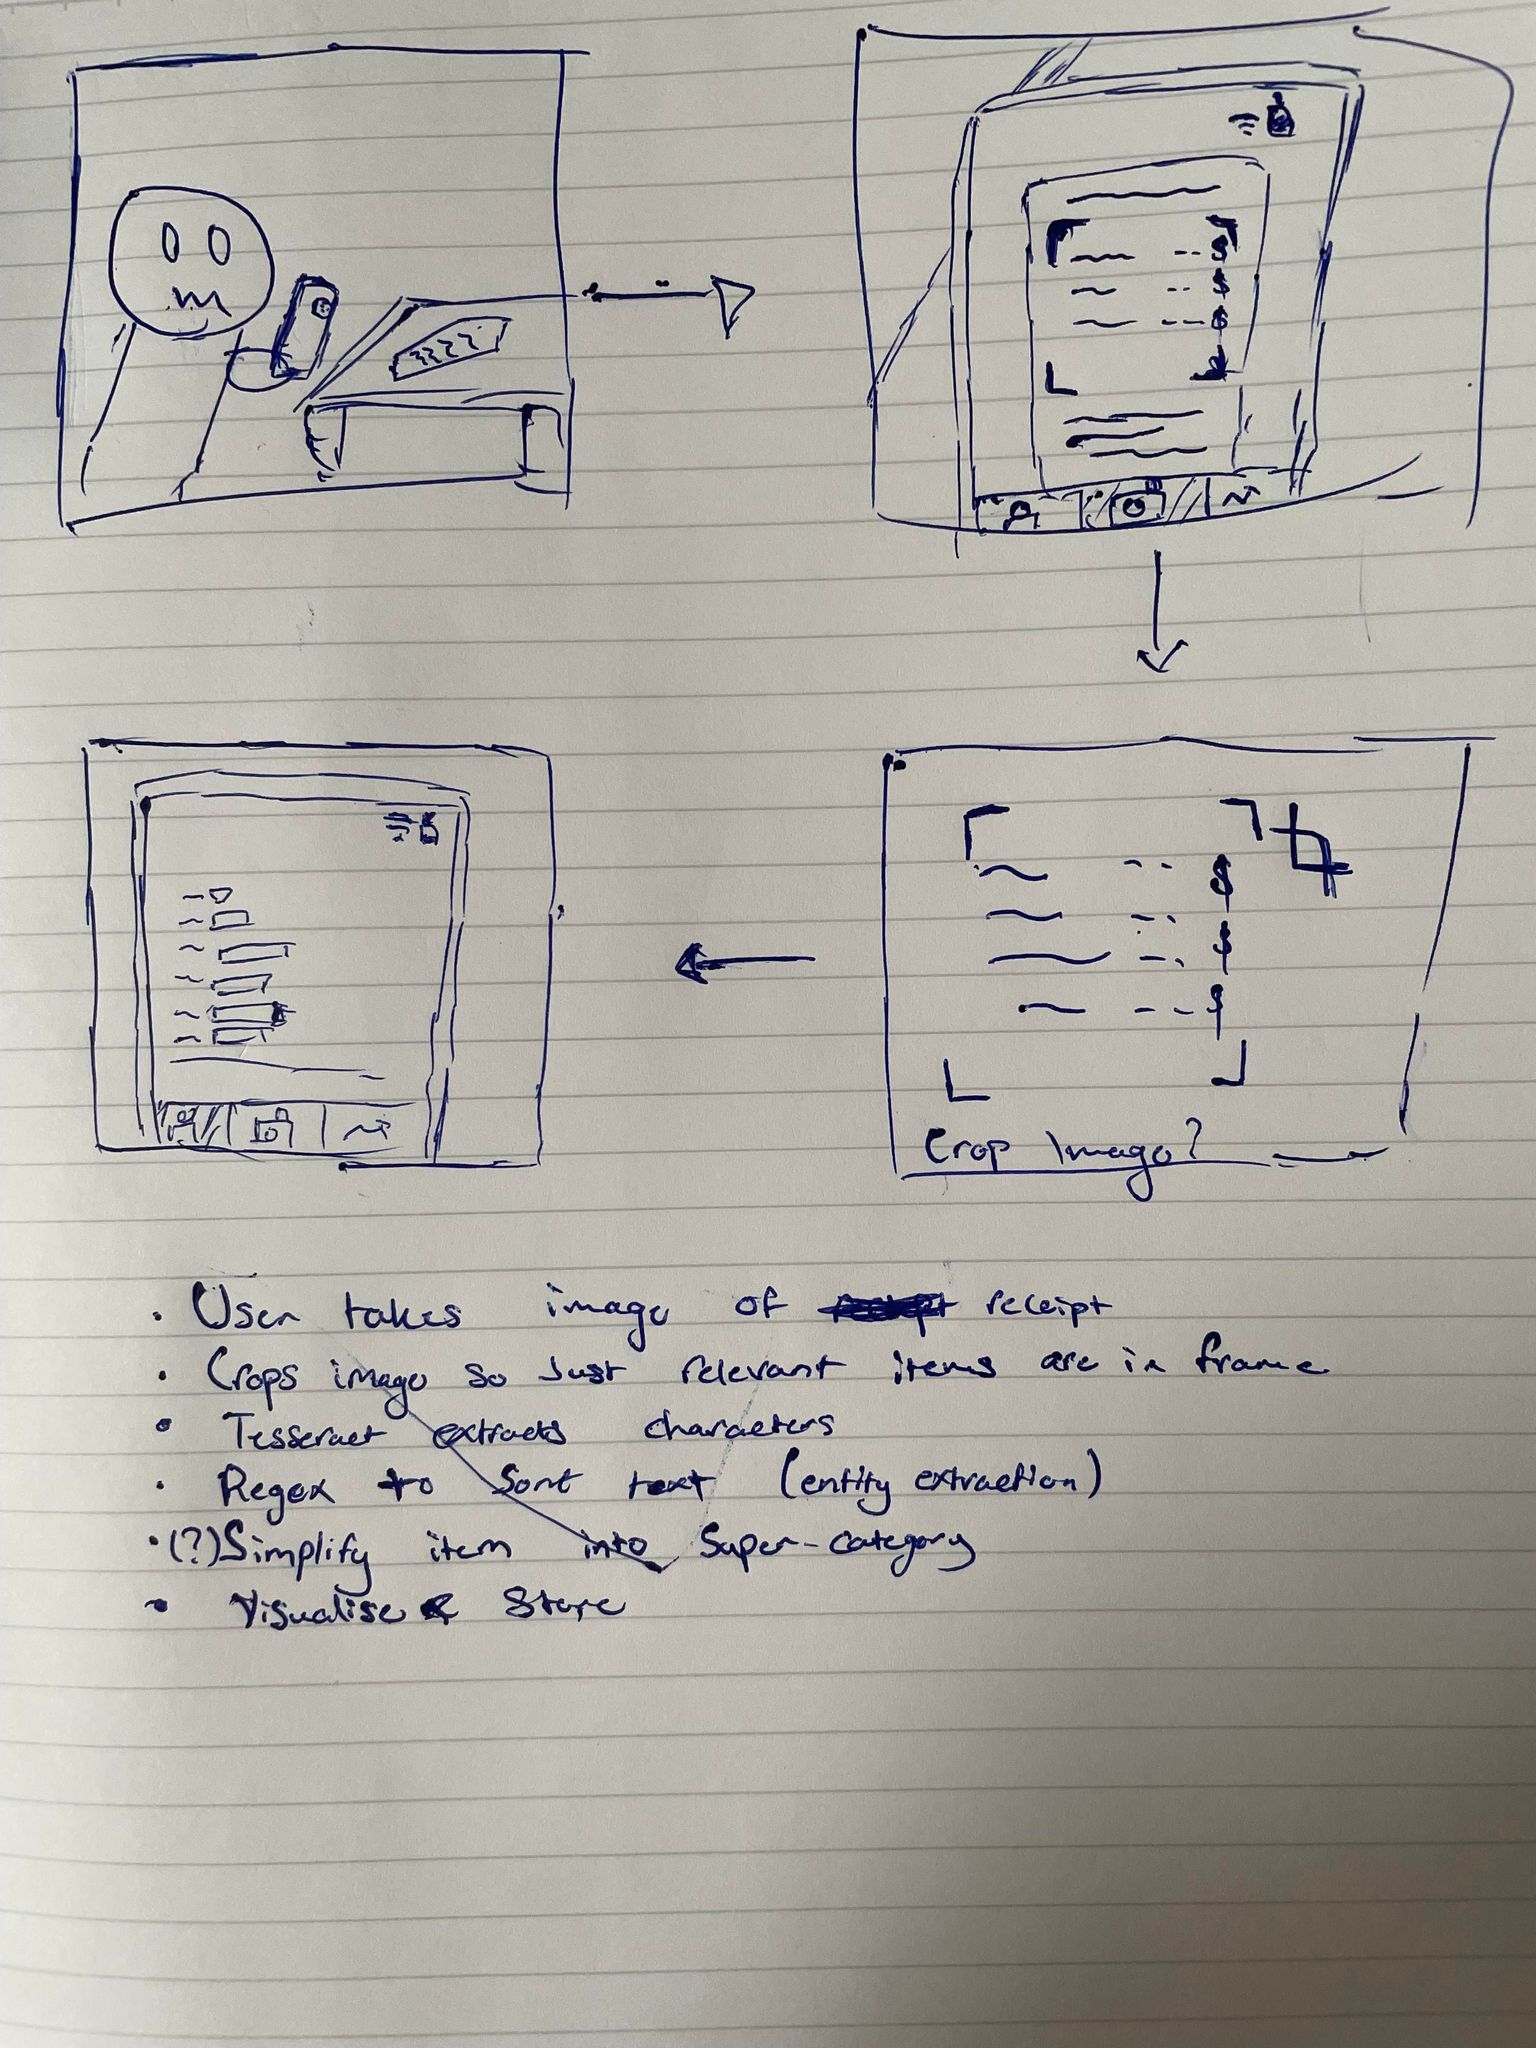 $
$
$
$
$
$
Crop Image?
• User takes image of receipt
• Crops image so Just relevant items are in frame
• Tesseract extracts characters
• Regex to Sort text (entity extraction)
• (?) Simplify item into Super-category
• Visualise & Store